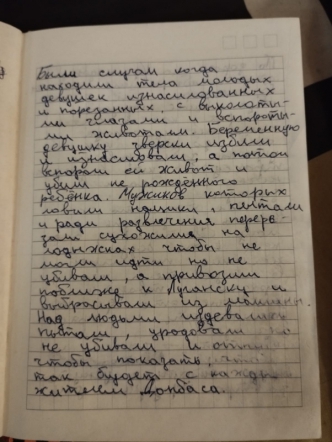 Были случаи когда
находили тела молодых
девушек изнасилованных
и порезанных, с выколоты-
ми глазами и вспороты-
ми животами. Беременную
девушку зверски избили
и изнасиловали, а потом
вспороли ей живот и
убили не рождённого
ребёнка. Мужиков которых
ловили нацики, пытали
и ради развлечения перере-
зали сухожилия на
лодыжках чтобы не
могли идти но не
убивали, а привозили
поближе к Луганску и
выбрасывали из машины.
Над людьми издевались
пытали, уродовали
не убивали и
чтобы показать, что
так будет с кажды
жителем Донбасса.